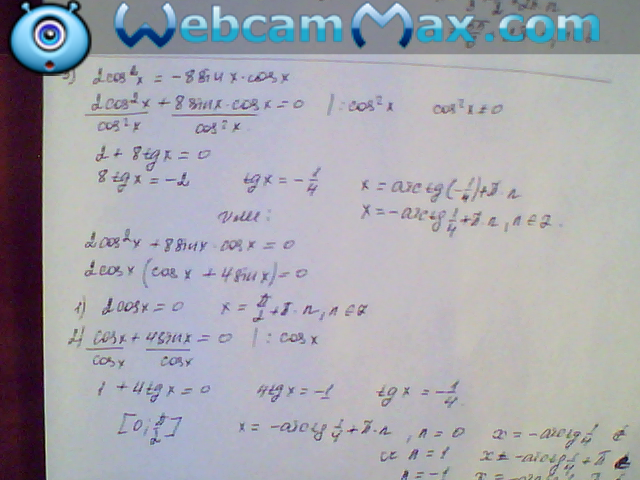 WebcamMax.com
2cos²x = -8sinx·cosx
2cos²x/cos²x + 8sinx·cosx/cos²x = 0 |:cos²x cos²x≠0
2 + 8tgx = 0
8tgx = -2 tgx = -1/4 x = arctg(-1/4)+π·n
x = -arctg1/4+π·n, n∈Z.
или:
2cos²x + 8sinx·cosx = 0
2cosx (cosx + 4sinx) = 0
1) 2cosx = 0 x = π/2 + π·n, n∈Z
2) cosx/cosx + 4sinx/cosx = 0 |: cosx
1 + 4tgx = 0 4tgx = -1 tgx = -1/4
[0; π/2] x = -arctg1/4+π·n, n = 0 x = -arctg1/4
n = 1 x = -arctg1/4+π
n = -1